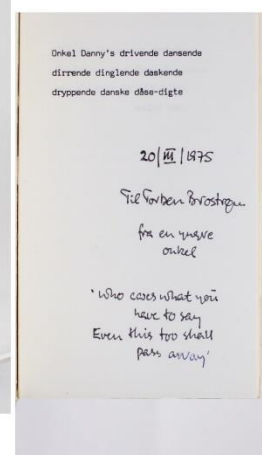 Onkel Danny's drivende dansende
dirrende dinglende daskende
dryppende danske dåse-digte
20/III/1975
Til Torben Brostrøm
fra en yngre
onkel
'who cares what you
have to say
Even this too shall
pass away'